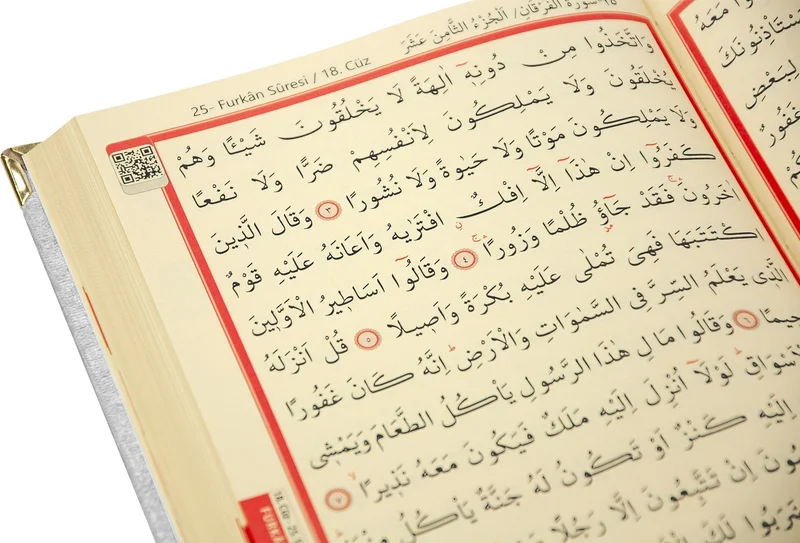 25- Furkân Sûresi / 18. Cüz
سورة الفرقان / الجزء الثامن عشر
وَاتَّخَذُوا مِنْ دُونِهٖٓ اٰلِهَةً لَا يَخْلُقُونَ شَيْـًٔا وَهُمْ
يُخْلَقُونَ وَلَا يَمْلِكُونَ لِاَنْفُسِهِمْ ضَرًّا وَلَا نَفْعًا
وَلَا يَمْلِكُونَ مَوْتًا وَلَا حَيٰوةً وَلَا نُشُورًا ٣ وَقَالَ الَّذٖينَ
كَفَرُٓوا اِنْ هٰذَٓا اِلَّٓا اِفْكٌۨ افْتَرٰيهُ وَاَعَانَهُ عَلَيْهِ قَوْمٌ
اٰخَرُونَۚ فَقَدْ جَٓاؤُ ظُلْمًا وَزُورًاۚ ٤ وَقَالُٓوا اَسَاطٖيرُ الْاَوَّلٖينَ
اكْتَتَبَهَا فَهِيَ تُمْلٰى عَلَيْهِ بُكْرَةً وَاَصٖيلًا ٥ قُلْ اَنْزَلَهُ
الَّذٖي يَعْلَمُ السِّرَّ فِي السَّمٰوَاتِ وَالْاَرْضِۜ اِنَّهُ كَانَ غَفُورًا
حٖيمًا ٦ وَقَالُوا مَالِ هٰذَا الرَّسُولِ يَأْكُلُ الطَّعَامَ وَيَمْشٖي
الْاَسْوَاقِۜ لَوْلَٓا اُنْزِلَ اِلَيْهِ مَلَكٌ فَيَكُونَ مَعَهُ نَذٖيرًاۙ ٧
اِلَيْهِ كَنْزٌ اَوْ تَكُونُ لَهُ جَنَّةٌ يَأْكُلُ
اِنْ تَتَّبِعُونَ اِلَّا رَجُلًا
ضَرَبُوا لَكَ
مَعَهُ
يَسْتَأْذِنُونَكَ
لِبَعْضِ
غَفُورٌ